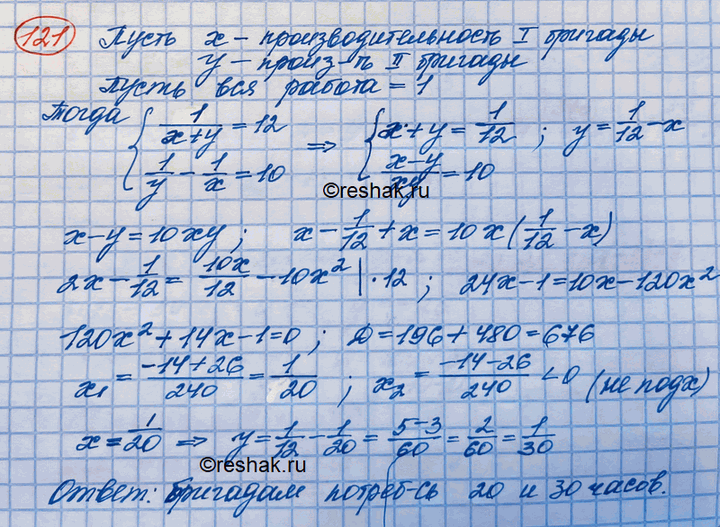 121 Пусть x - производительность I бригады
y - произ-ть II бригады
Пусть вся работа = 1
Тогда { 1/(x+y) = 12 ; 1/y - 1/x = 10 ⇒ { x+y = 1/12 ; (x-y)/xy = 10 ; y = 1/12 - x
©reshak.ru
x-y = 10xy ; x - 1/12 + x = 10x(1/12 - x)
2x - 1/12 = 10x/12 - 10x² |·12 ; 24x-1 = 10x-120x²
120x² + 14x - 1 = 0 ; D = 196 + 480 = 676
x₁ = (-14+26)/240 = 1/20 ; x₂ = (-14-26)/240 < 0 (не подх)
x = 1/20 ⇒ y = 1/12 - 1/20 = (5-3)/60 = 2/60 = 1/30
©reshak.ru
Ответ: бригадам потреб-сь 20 и 30 часов.